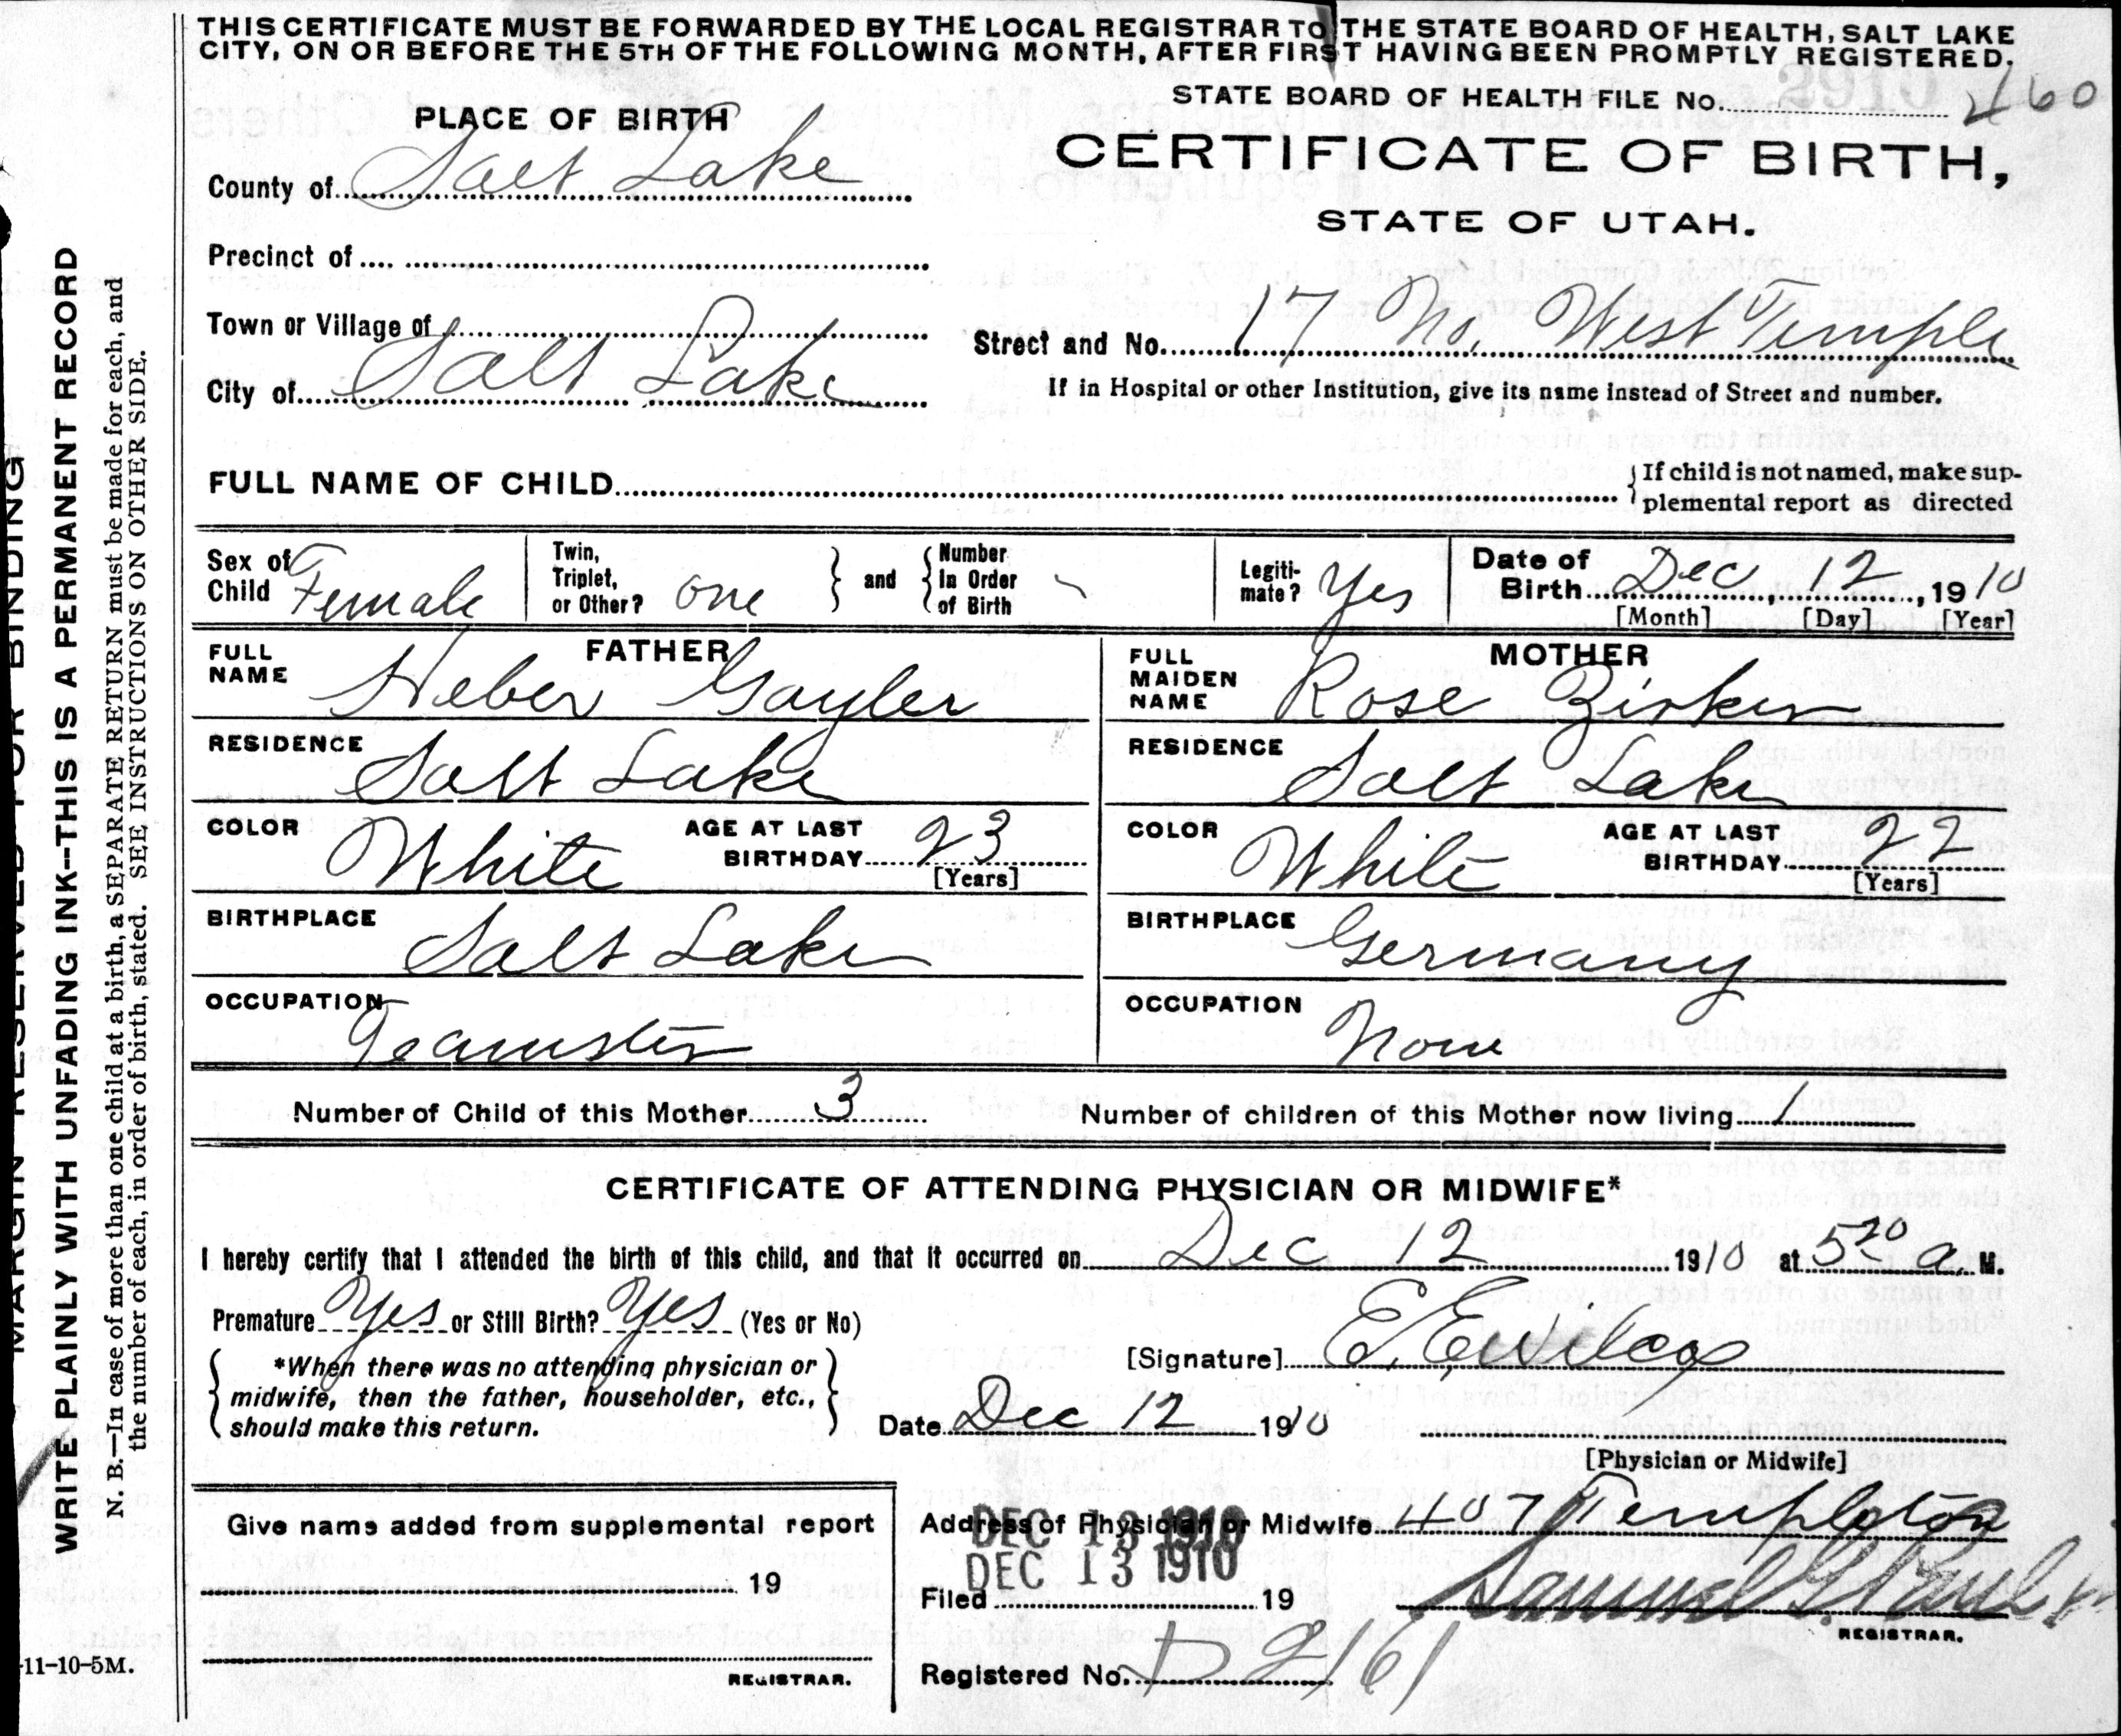 THIS CERTIFICATE MUST BE FORWARDED BY THE LOCAL REGISTRAR TO THE STATE BOARD OF HEALTH, SALT LAKE
CITY, ON OR BEFORE THE 5TH OF THE FOLLOWING MONTH, AFTER FIRST HAVING BEEN PROMPTLY REGISTERED.
STATE BOARD OF HEALTH FILE No. 160
PLACE OF BIRTH
CERTIFICATE OF BIRTH,
STATE OF UTAH.
County of Salt Lake
Precinct of
Town or Village of
Street and No. 17 No. West Temple
City of Salt Lake
If in Hospital or other Institution, give its name instead of Street and number.
FULL NAME OF CHILD
If child is not named, make sup-
plemental report as directed
Sex of Child Female
Twin, Triplet, or Other? one
and Number In Order of Birth
Legiti-mate? Yes
Date of Birth Dec, 12, 1910
[Month] [Day] [Year]
FATHER
FULL NAME Heber Gayler
RESIDENCE Salt Lake
COLOR White AGE AT LAST BIRTHDAY 23
[Years]
BIRTHPLACE Salt Lake
OCCUPATION Teamster
MOTHER
FULL MAIDEN NAME Rose Zirker
RESIDENCE Salt Lake
COLOR White AGE AT LAST BIRTHDAY 22
[Years]
BIRTHPLACE Germany
OCCUPATION None
Number of Child of this Mother 3 Number of children of this Mother now living 1
CERTIFICATE OF ATTENDING PHYSICIAN OR MIDWIFE*
I hereby certify that I attended the birth of this child, and that it occurred on Dec 12 1910 at 5 20 a. M.
Premature Yes or Still Birth? Yes (Yes or No)
[Signature] E. E. Wilcox
*When there was no attending physician or
midwife, then the father, householder, etc.,
should make this return.
Date Dec 12 1910
[Physician or Midwife]
Give name added from supplemental report
19
REGISTRAR.
Address of Physician or Midwife 407 Templeton
DEC 13 1910
DEC 13 1910
Filed 19
Samuel G. Paul
REGISTRAR.
Registered No. D 2161
MARGIN RESERVED FOR BINDING
WRITE PLAINLY WITH UNFADING INK--THIS IS A PERMANENT RECORD
N. B.—In case of more than one child at a birth, a SEPARATE RETURN must be made for each, and
the number of each, in order of birth, stated. SEE INSTRUCTIONS ON OTHER SIDE.
11-10-5M.